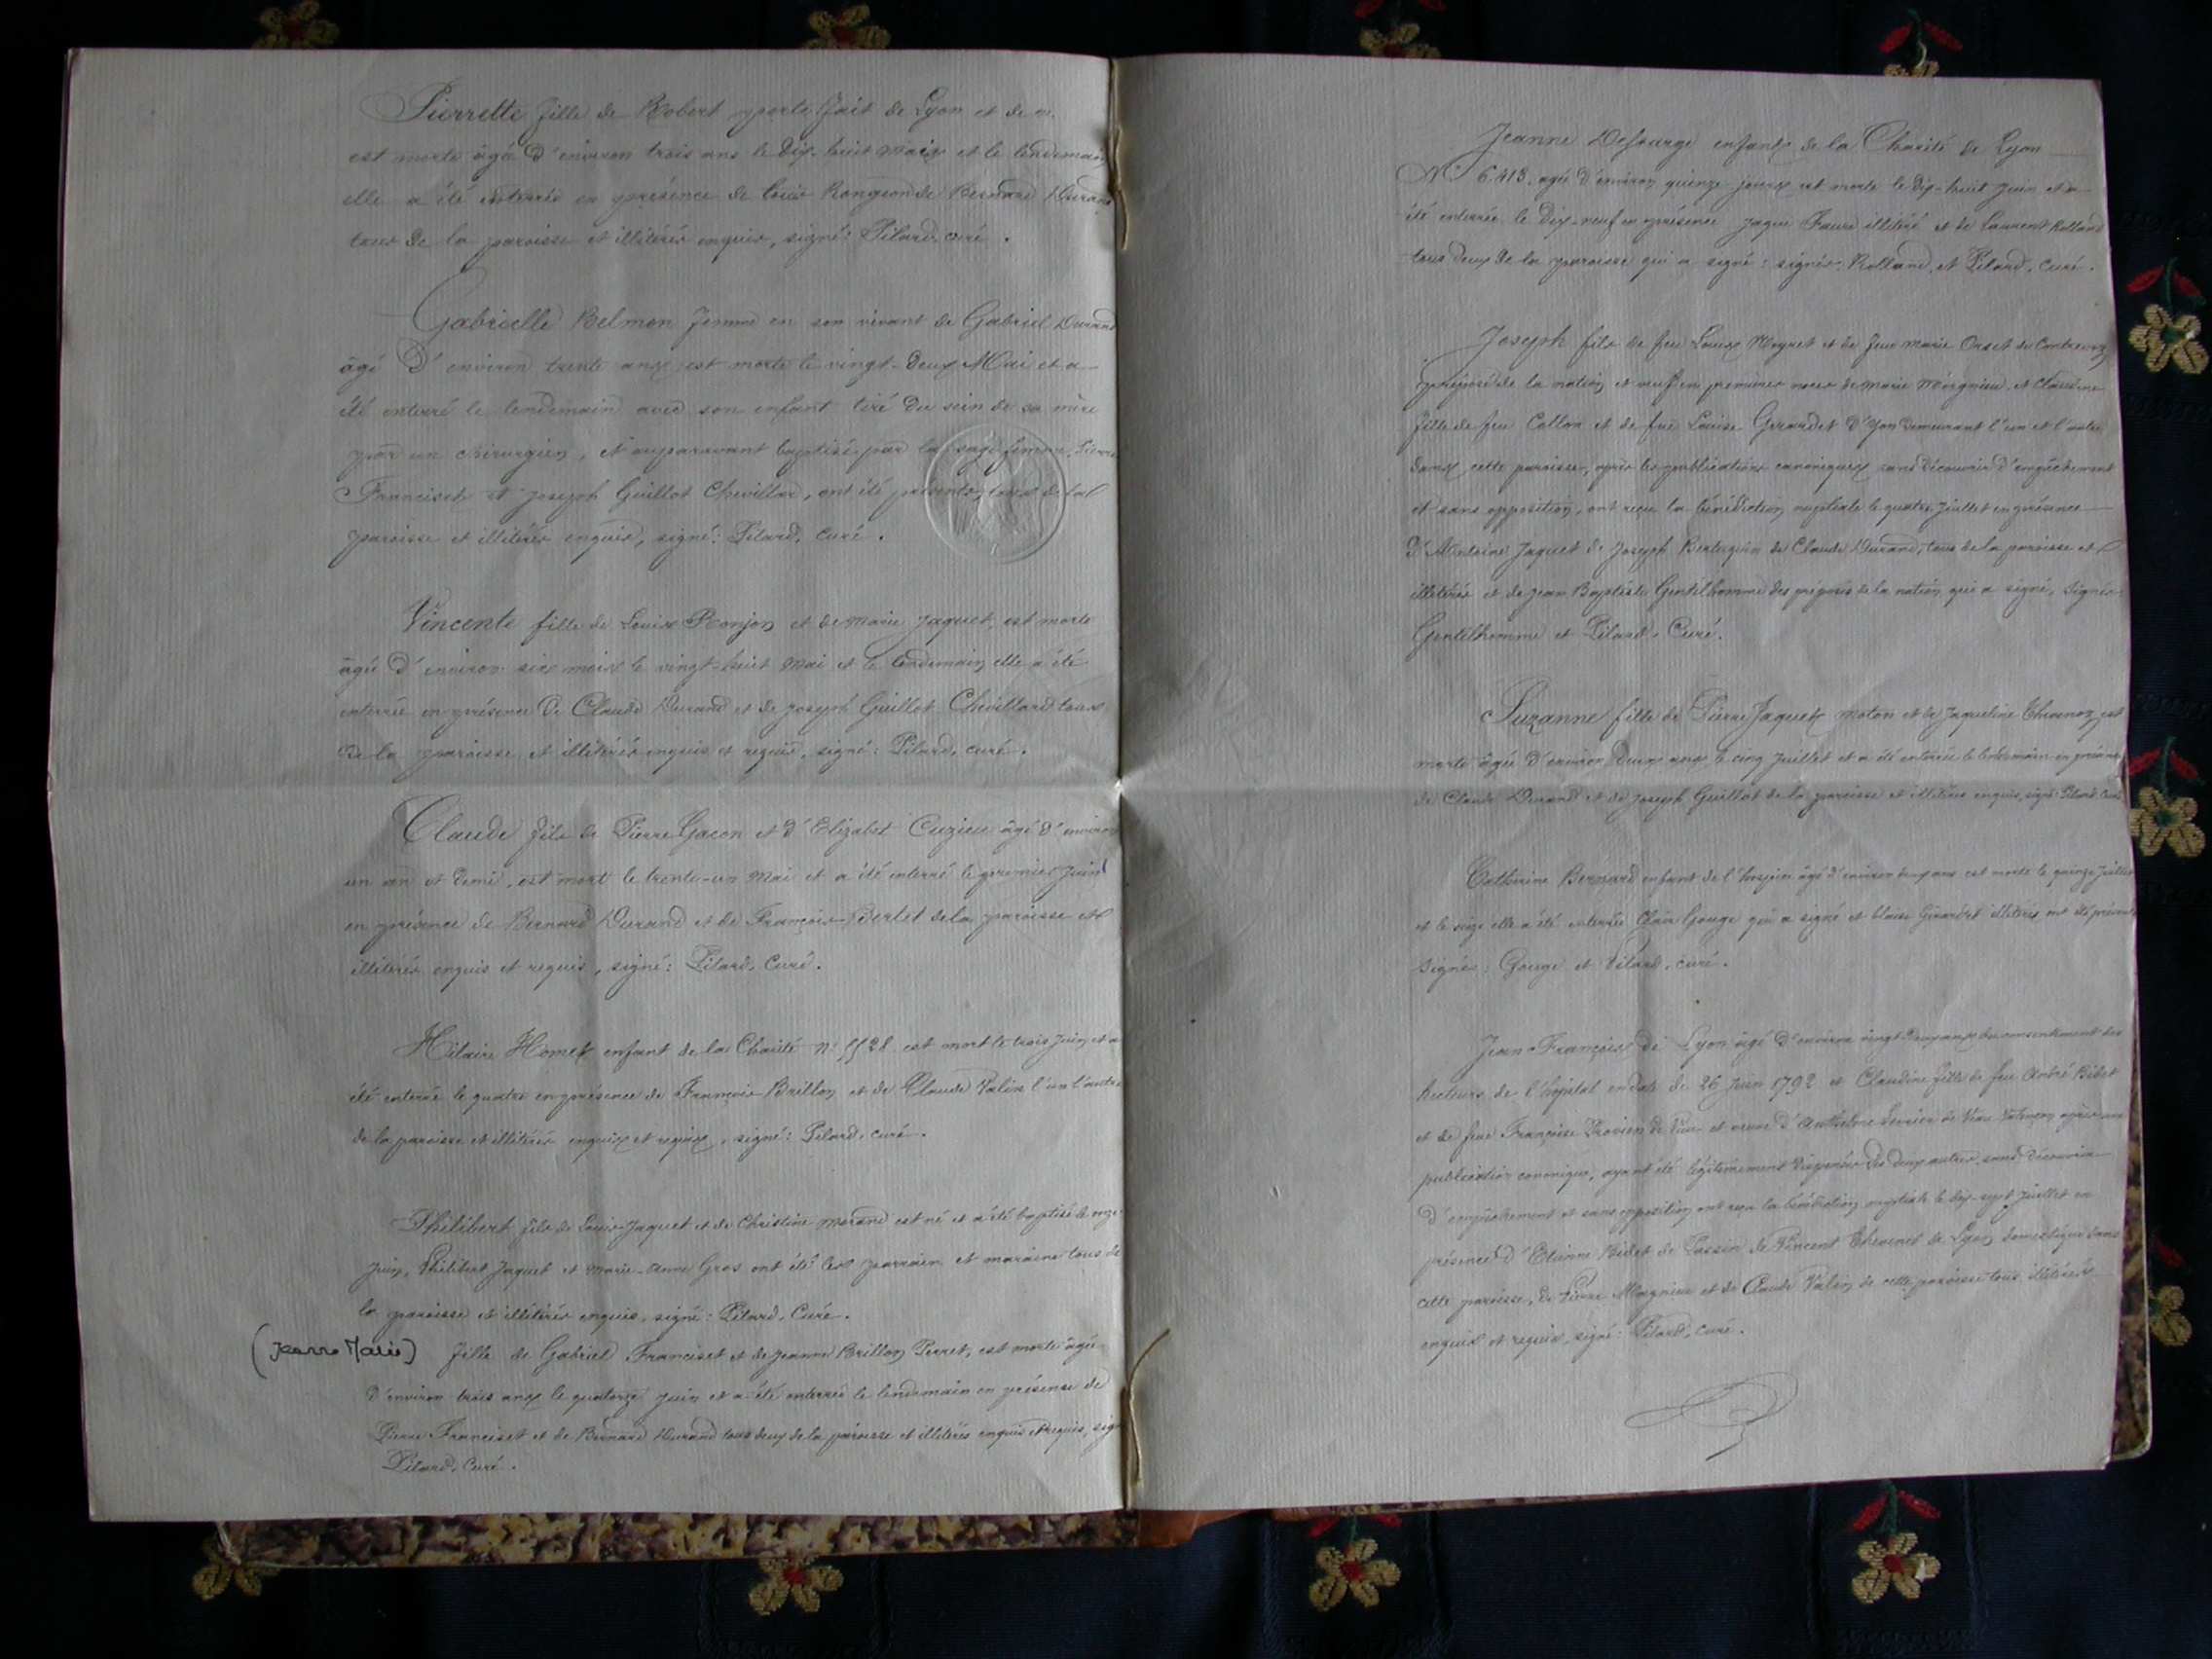 Pierrette fille de Robert parte fait de Lyon et de m.
est morte âgée d'environ trois ans le dix-huit Mai et le lendemain
elle a été enterrée en présence de Louis Rongeon de Bernard Durand
tous de la paroisse et illitérés enquis, signé: Pilard, curé.
Gabrielle Belmon femme en son vivant de Gabriel Durand
âgé d'environ trente ans est morte le vingt-deux Mai et a
été enterré le lendemain avec son enfant tiré du sein de sa mère
par un chirurgien, et auparavant baptisé par la sage femme, Pierre
Franciset et Joseph Guillot Chevillard, ont été présents, tous de la
paroisse et illitérés enquis, signé: Pilard, curé.
Vincente fille de Louis Ronjon et de Marie Jaquet, est morte
âgée d'environ six mois le vingt-huit Mai et le lendemain elle a été
enterrée en présence de Claude Durand et de Joseph Guillot Chevillard tous
de la paroisse et illitérés enquis et requis, signé: Pilard, curé.
Claude fils de Pierre Gacon et d'Elizabet Cuzieu âgé d'environ
un an et demi, est mort le trente-un Mai et a été enterré le premier Juin
en présence de Bernard Durand et de François Berlet de la paroisse et
illitérés enquis et requis, signé: Pilard, curé.
Hilaire Homet enfant de la Charité n: 5528 est mort le trois Juin et a
été enterré le quatre en présence de François Brillon et de Claude Valin l'un l'autre
de la paroisse et illitérés enquis et requis, signé: Pilard, curé.
Philibert fils de Louis Jaquet et de Christine Morand est né et a été baptisé le onze
Juin, Philibert Jaquet et Marie-Anne Gros ont été les parrain et maraine tous de
la paroisse et illitérés enquis, signé: Pilard, Curé.
(Jeanne Marie) fille de Gabriel Franciset et de Jeanne Brillon Perret, est morte âgée
d'environ trois ans le quatorze Juin et a été enterrée le lendemain en présense de
Pierre Franciset et de Bernard Durand tous deux de la paroisse et illitérés enquis et requis, signé
Pilard, Curé.
Jeanne Defsurge enfant de la Charité de Lyon
N° 6.413. agée d'environ quinze jours est morte le dix-huit Juin et a
été enterrée le dix-neuf en présence Jaque Faure illitéré et de Laurent Rolland
tous deux de la paroisse qui a signé: signés: Rolland, et Pilard, Curé.
Joseph fils de feu Louis Meyret et de feue Marie Orset de Contrevoz
préposé de la nation et veuf en premières noces de Marie Magnieu et Claudine
fille de feu Collon et de feue Louise Gerardet d'Yon demeurant l'un et l'autre
dans cette paroisse, après les publications canoniques sans découvrir d'empêchement
et sans opposition, ont reçu la bénédiction nuptiale le quatre Juillet en présence
d'Antoine Jaquet de Joseph Berlequin de Claude Durand, tous de la paroisse et
illitérés et de Jean Baptiste Gentilhomme des préposés de la nation qui a signé, signés
Gentilhomme et Pilard, Curé.
Suzanne fille de Pierre Jaquet moton et de Jaqueline Thevenoz est
morte âgée d'environ deux ans le cinq Juillet et a été enterrée le lendemain en présence
de Claude Durand et de Joseph Guillot de la paroisse et illitérés enquis, signé: Pilard. Curé
Catherine Bernard enfant de l'hospice âgé d'environ deux ans est morte le quinze Juillet
et le seize elle a été enterrée Clair Gouge qui a signé et blaise Girardet illitérés ont été présents
Signés: Gouge et Pilard, curé.
Jean-François de Lyon âgé d'environ vingt-deux ans du consentement des
Recteurs de l'hôpital en date de 26 Juin 1792 et Claudine fille de feu André Bidet
et de feue Françoise de et veuve d'Anthelme de Virieu après une
publication canonique, ayant été légitimement dispensés des deux autres, sans découvrir
d'empêchement et sans opposition ont reçu la bénédiction nuptiale le dix-sept Juillet en
présence d'Etienne Bidet de Passin de Vincent Thevenet de Lyon domestique dans
cette paroisse, de Pierre Magnieu et de Claude Valin de cette paroisse tous illitérés
enquis et requis, signé: Pilard, curé.